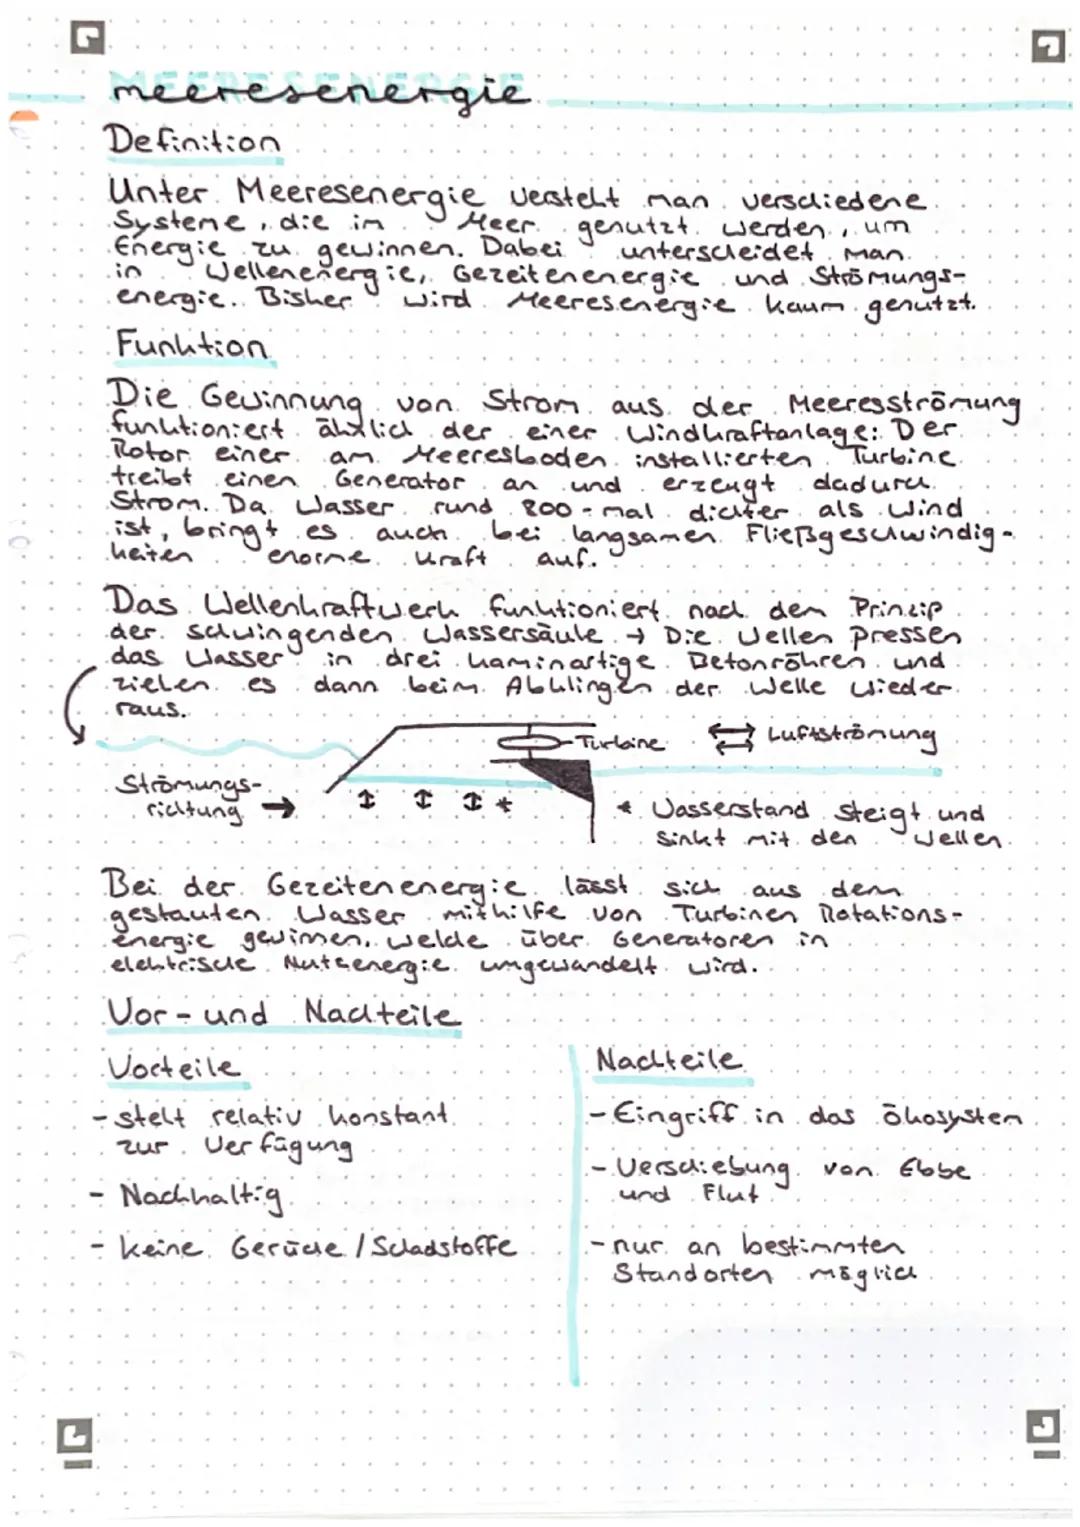 MEERESENERGIE
meeresenergie
Definition
Unter Meeresenergie versteht man verschiedene
Systeme, die im Meer genutzt werden, um
Energie zu gewinnen. Dabei unterscheidet man
in Wellenenergie, Gezeitenenergie und Strömungs-
energie. Bisher wird Meeresenergie kaum genutzt.
Funktion
Die Gewinnung von Strom aus der Meeresströmung
funktioniert ähnlich der einer Windkraftanlage: Der
Rotor einer am Meeresboden installierten Turbine
treibt einen Generator an und erzeugt dadurch
Strom. Da Wasser rund 800-mal dichter als Wind
ist, bringt es auch bei langsamen Fließgeschwindig-
keiten enorme Kraft auf.
Das Wellenkraftwerk funktioniert nach dem Prinzip
der schwingenden Wassersäule → Die Wellen pressen
das Wasser in drei kaminartige Betonröhren und
ziehen es dann beim Abklingen der Welle wieder
raus.
Turbine ⇆ Luftströmung
Strömungs-
richtung →
↕ ↕ ↕ *
* Wasserstand steigt und
sinkt mit den Wellen
Bei der Gezeitenenergie lässt sich aus dem
gestauten Wasser mithilfe von Turbinen Rotations-
energie gewinnen, welche über Generatoren in
elektrische Nutzenergie umgewandelt wird.
Vor- und Nachteile
Vorteile
- steht relativ konstant
zur Verfügung
- Nachhaltig
- keine Gerüche / Schadstoffe
Nachteile
- Eingriff in das Ökosystem
- Verschiebung von Ebbe
und Flut
- nur an bestimmten
Standorten möglich